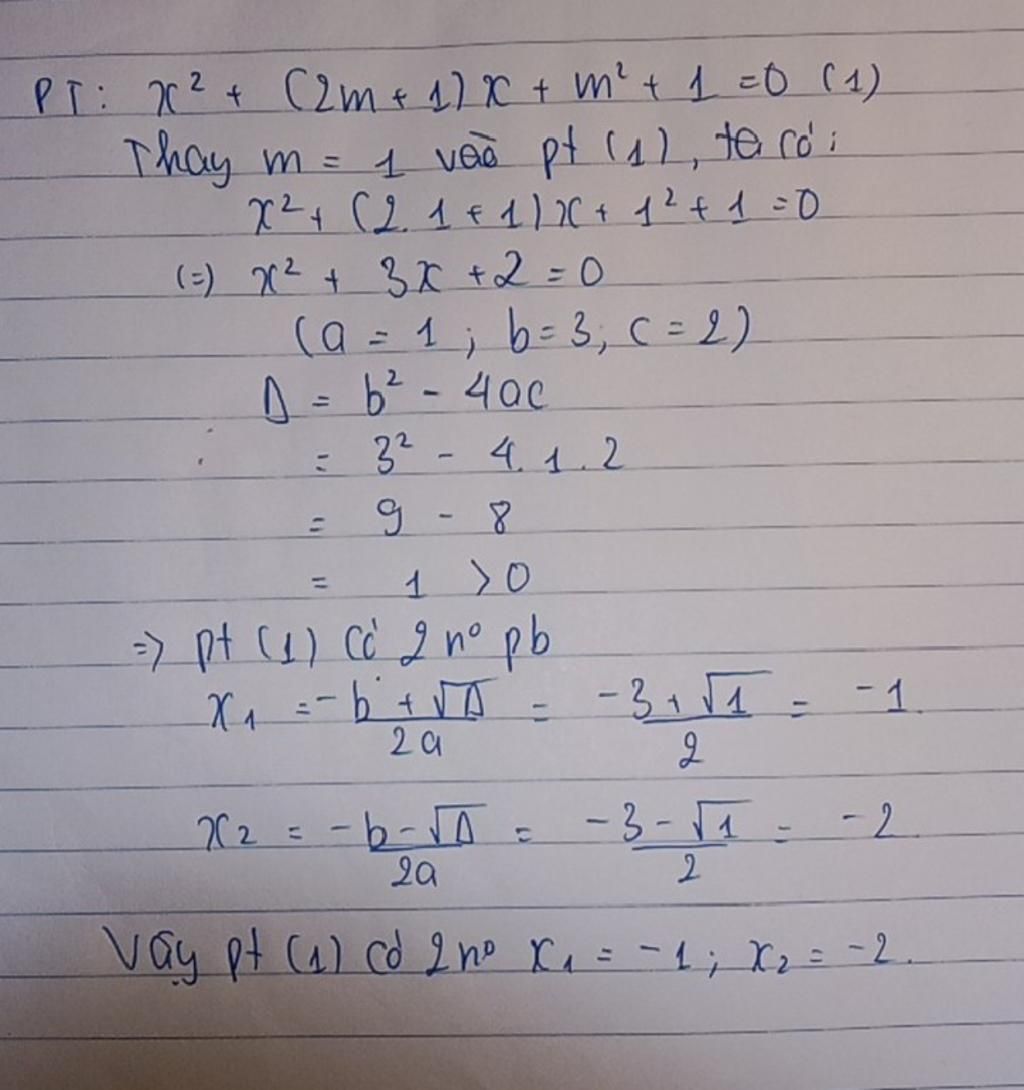 PT: x² + (2m + 1)x + m² + 1 = 0 (1)
Thay m = 1 vào pt (1), ta có:
x² + (2.1 + 1)x + 1² + 1 = 0
(=) x² + 3x + 2 = 0
(a = 1; b = 3; c = 2)
Δ = b² - 4ac
= 3² - 4.1.2
= 9 - 8
= 1 > 0
=> pt (1) có 2 nº pb
x₁ = (-b + √Δ)/2a = (-3 + √1)/2 = -1
x₂ = (-b - √Δ)/2a = (-3 - √1)/2 = -2
Vậy pt (1) có 2 nº x₁ = -1; x₂ = -2.